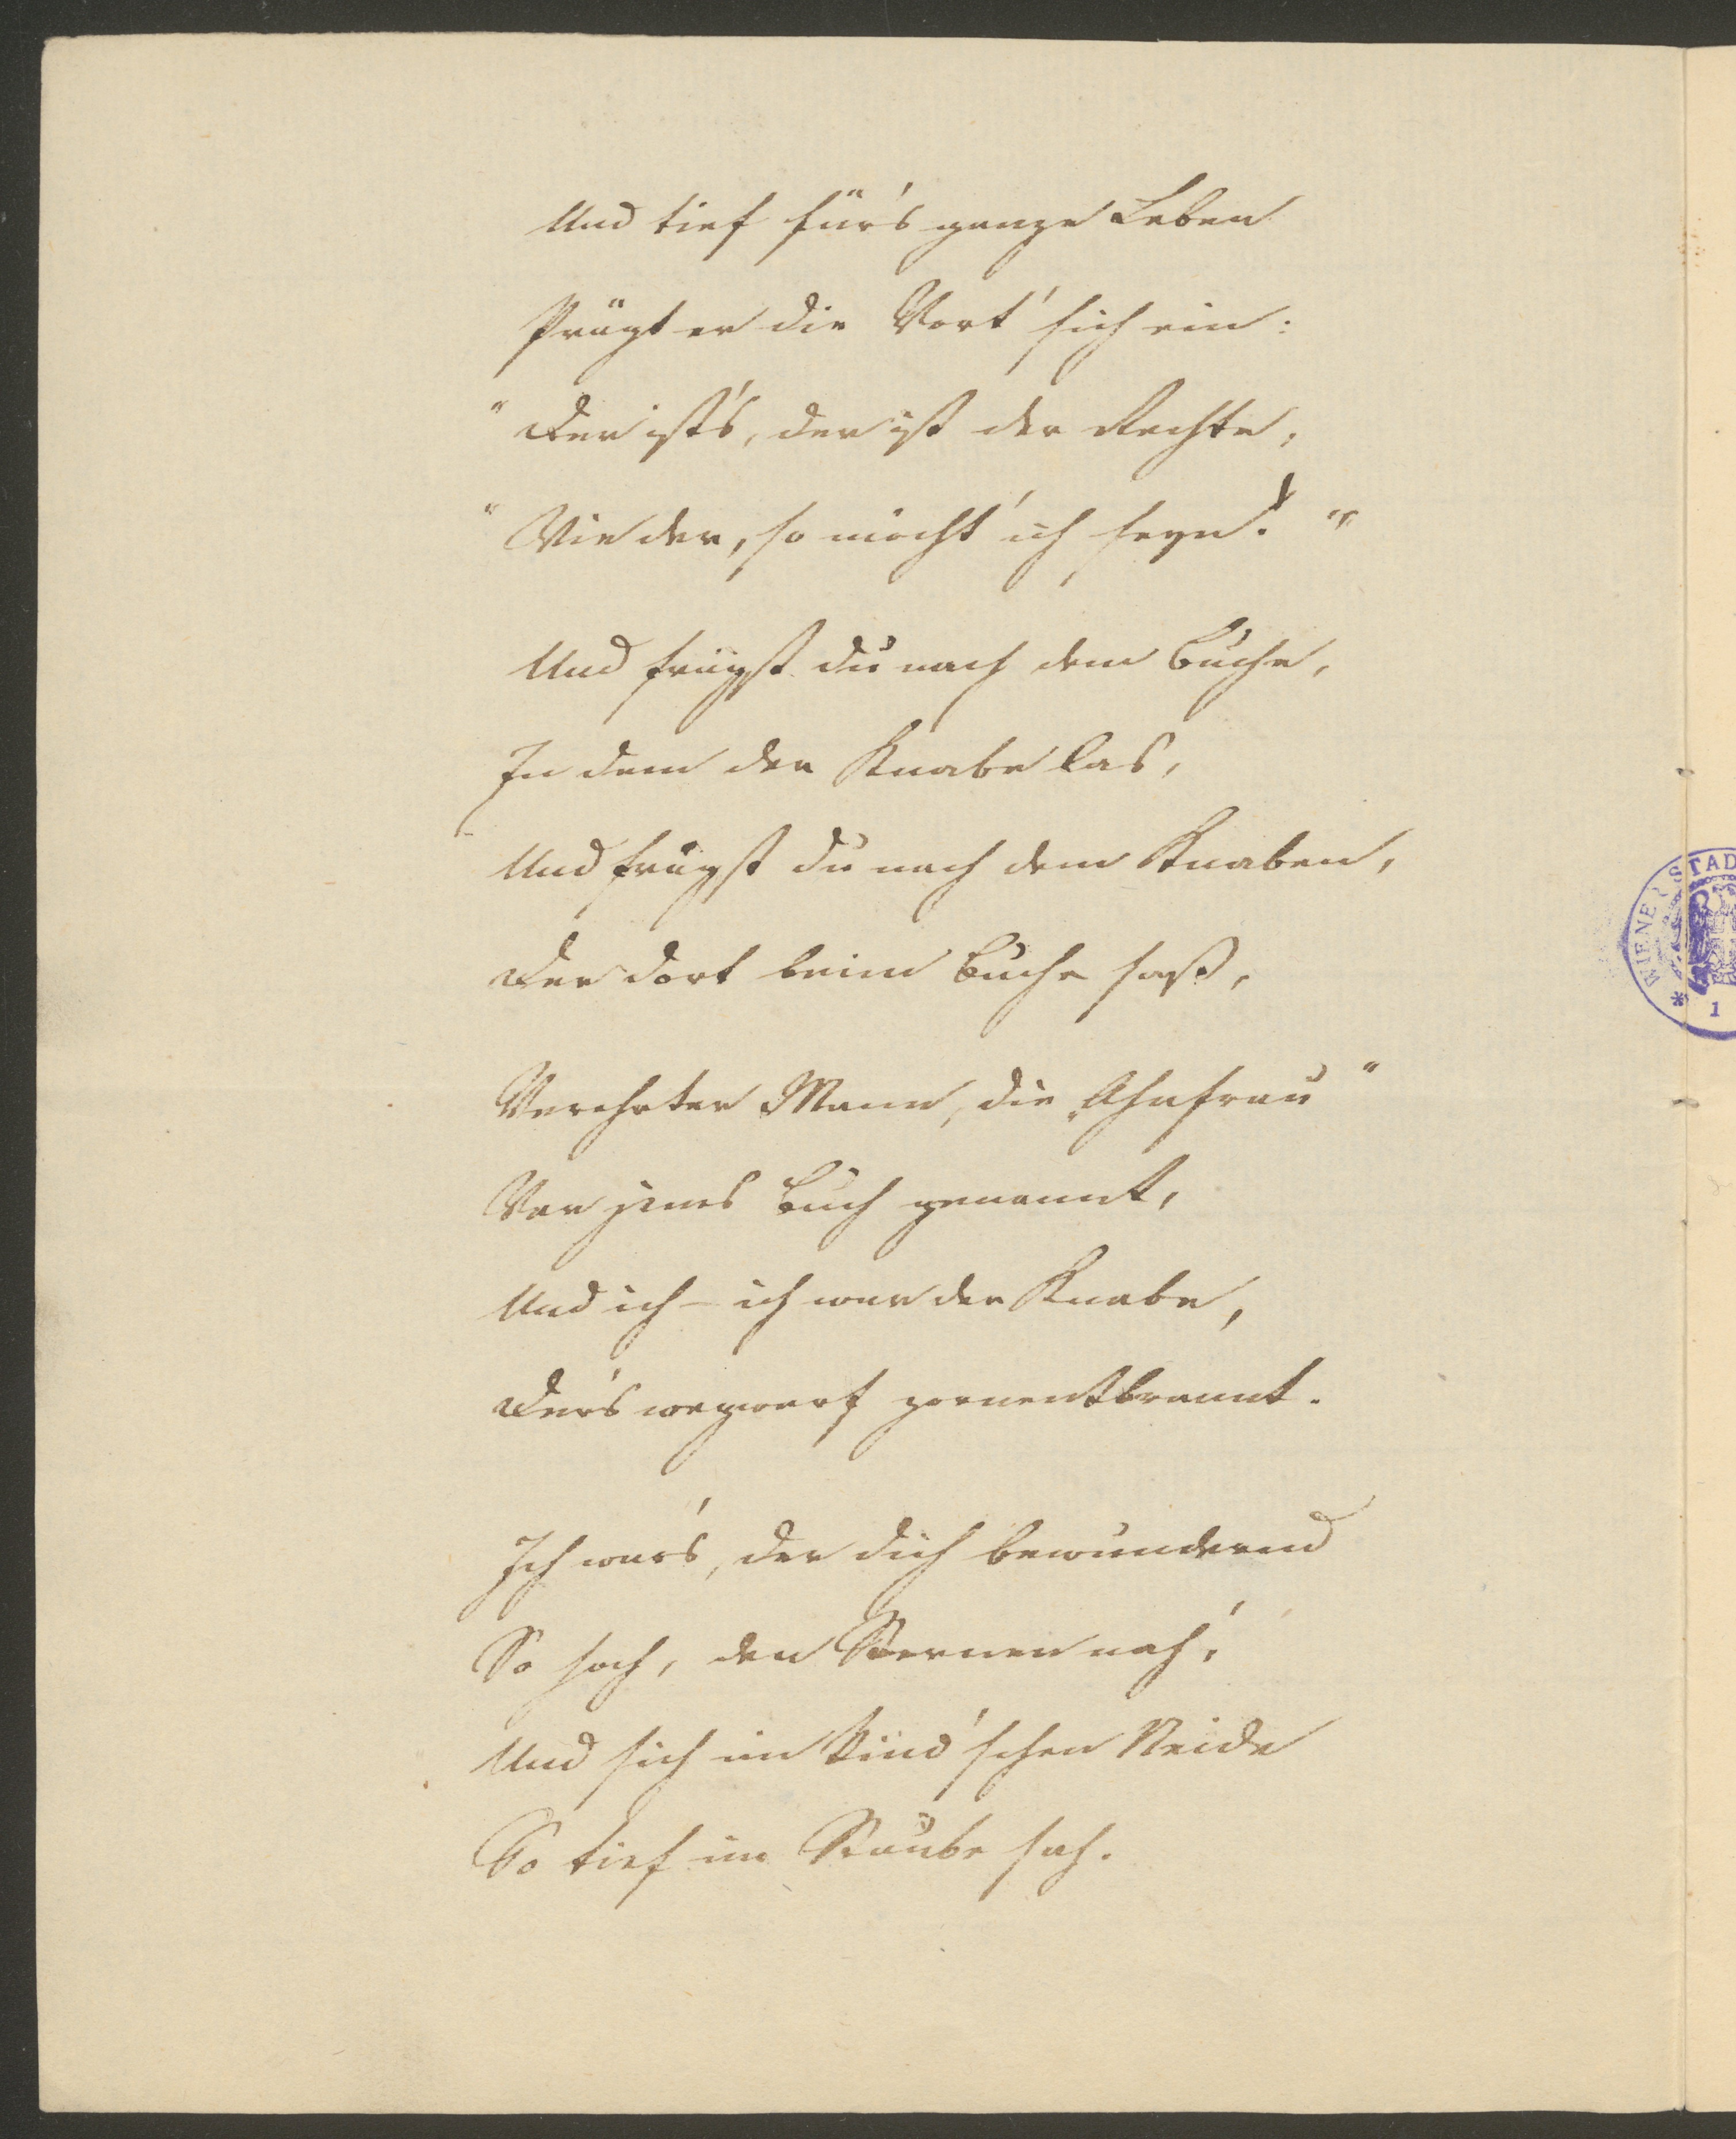 Und tief für's ganze Leben
Prägt er die Wort' sich ein:
"Der ist's, der ist der Rechte,
"Wie der, so möcht' ich seyn!"
Und frägst du nach dem Buche,
In dem der Knabe las,
Und frägst du nach dem Knaben,
Der dort beim Buche saß,
Verehrter Mann, die „Ahnfrau"
War jenes Buch genannt,
Und ich – ich war der Knabe,
Der's wegwarf zornentbrannt.
Ich war's, der dich bewundernd
So hoch, den Sternen nah,
Und sich im kind'schen Neide
So tief im Staube sah.
WIENER STAD
* 1